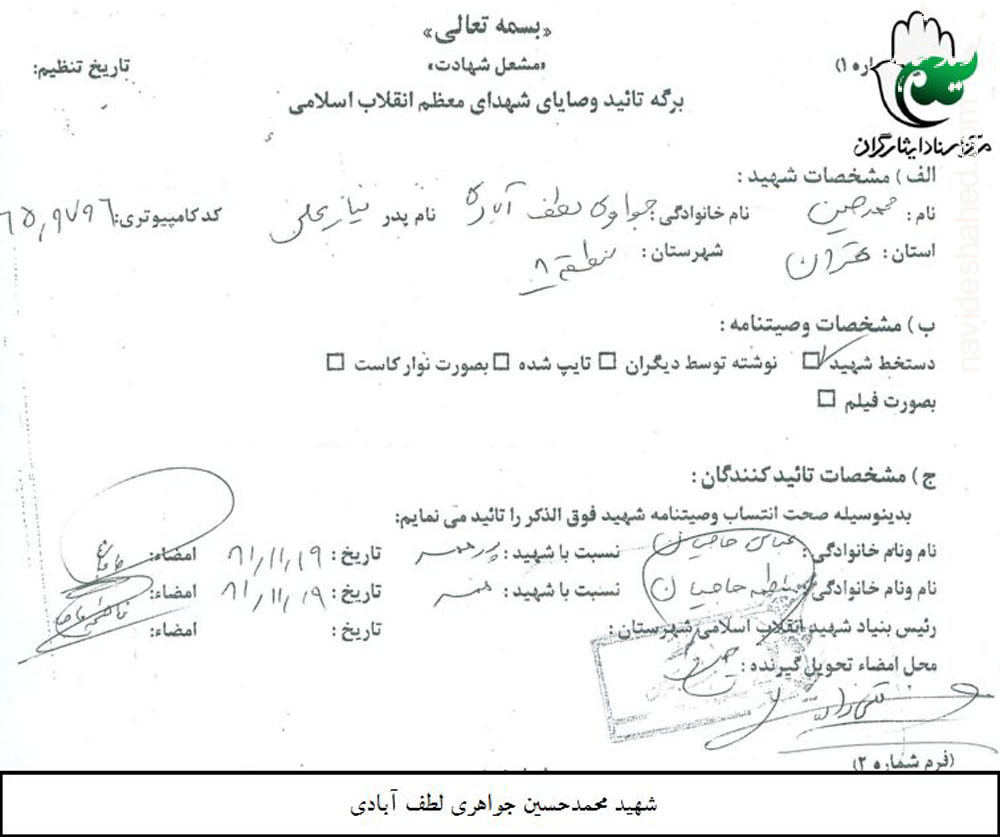 «بسمه تعالی»
«مشعل شهادت»
تاریخ تنظیم:
اره ۱)
برگه تائید وصایای شهدای معظم انقلاب اسلامی
مرکز اسناد ایثارگران
navideshahed.com
الف) مشخصات شهید:
نام: محمد حسین نام خانوادگی: جواهری لطف آبادی نام پدر نیازعلی کد کامپیوتری: ۶۵۰۹۷۹۶
استان: تهران شهرستان: منطقه ۸
ب) مشخصات وصیتنامه:
دستخط شهید نوشته توسط دیگران تایپ شده بصورت نوار کاست
بصورت فیلم
ج) مشخصات تائید کنندگان:
بدینوسیله صحت انتساب وصیتنامه شهید فوق الذکر را تائید می نمایم:
نام ونام خانوادگی: عباس حاجیان نسبت با شهید: پدر همسر تاریخ: ۸۱,۱۱,۱۹ امضاء:
نام ونام خانوادگی: فاطمه حاجیان نسبت با شهید: همسر تاریخ: ۸۱,۱۱,۱۹ امضاء:
رئیس بنیاد شهید انقلاب اسلامی شهرستان: تاریخ: امضاء:
محل امضاء تحویل گیرنده:
(فرم شماره ۲)
شهید محمدحسین جواهری لطف آبادی